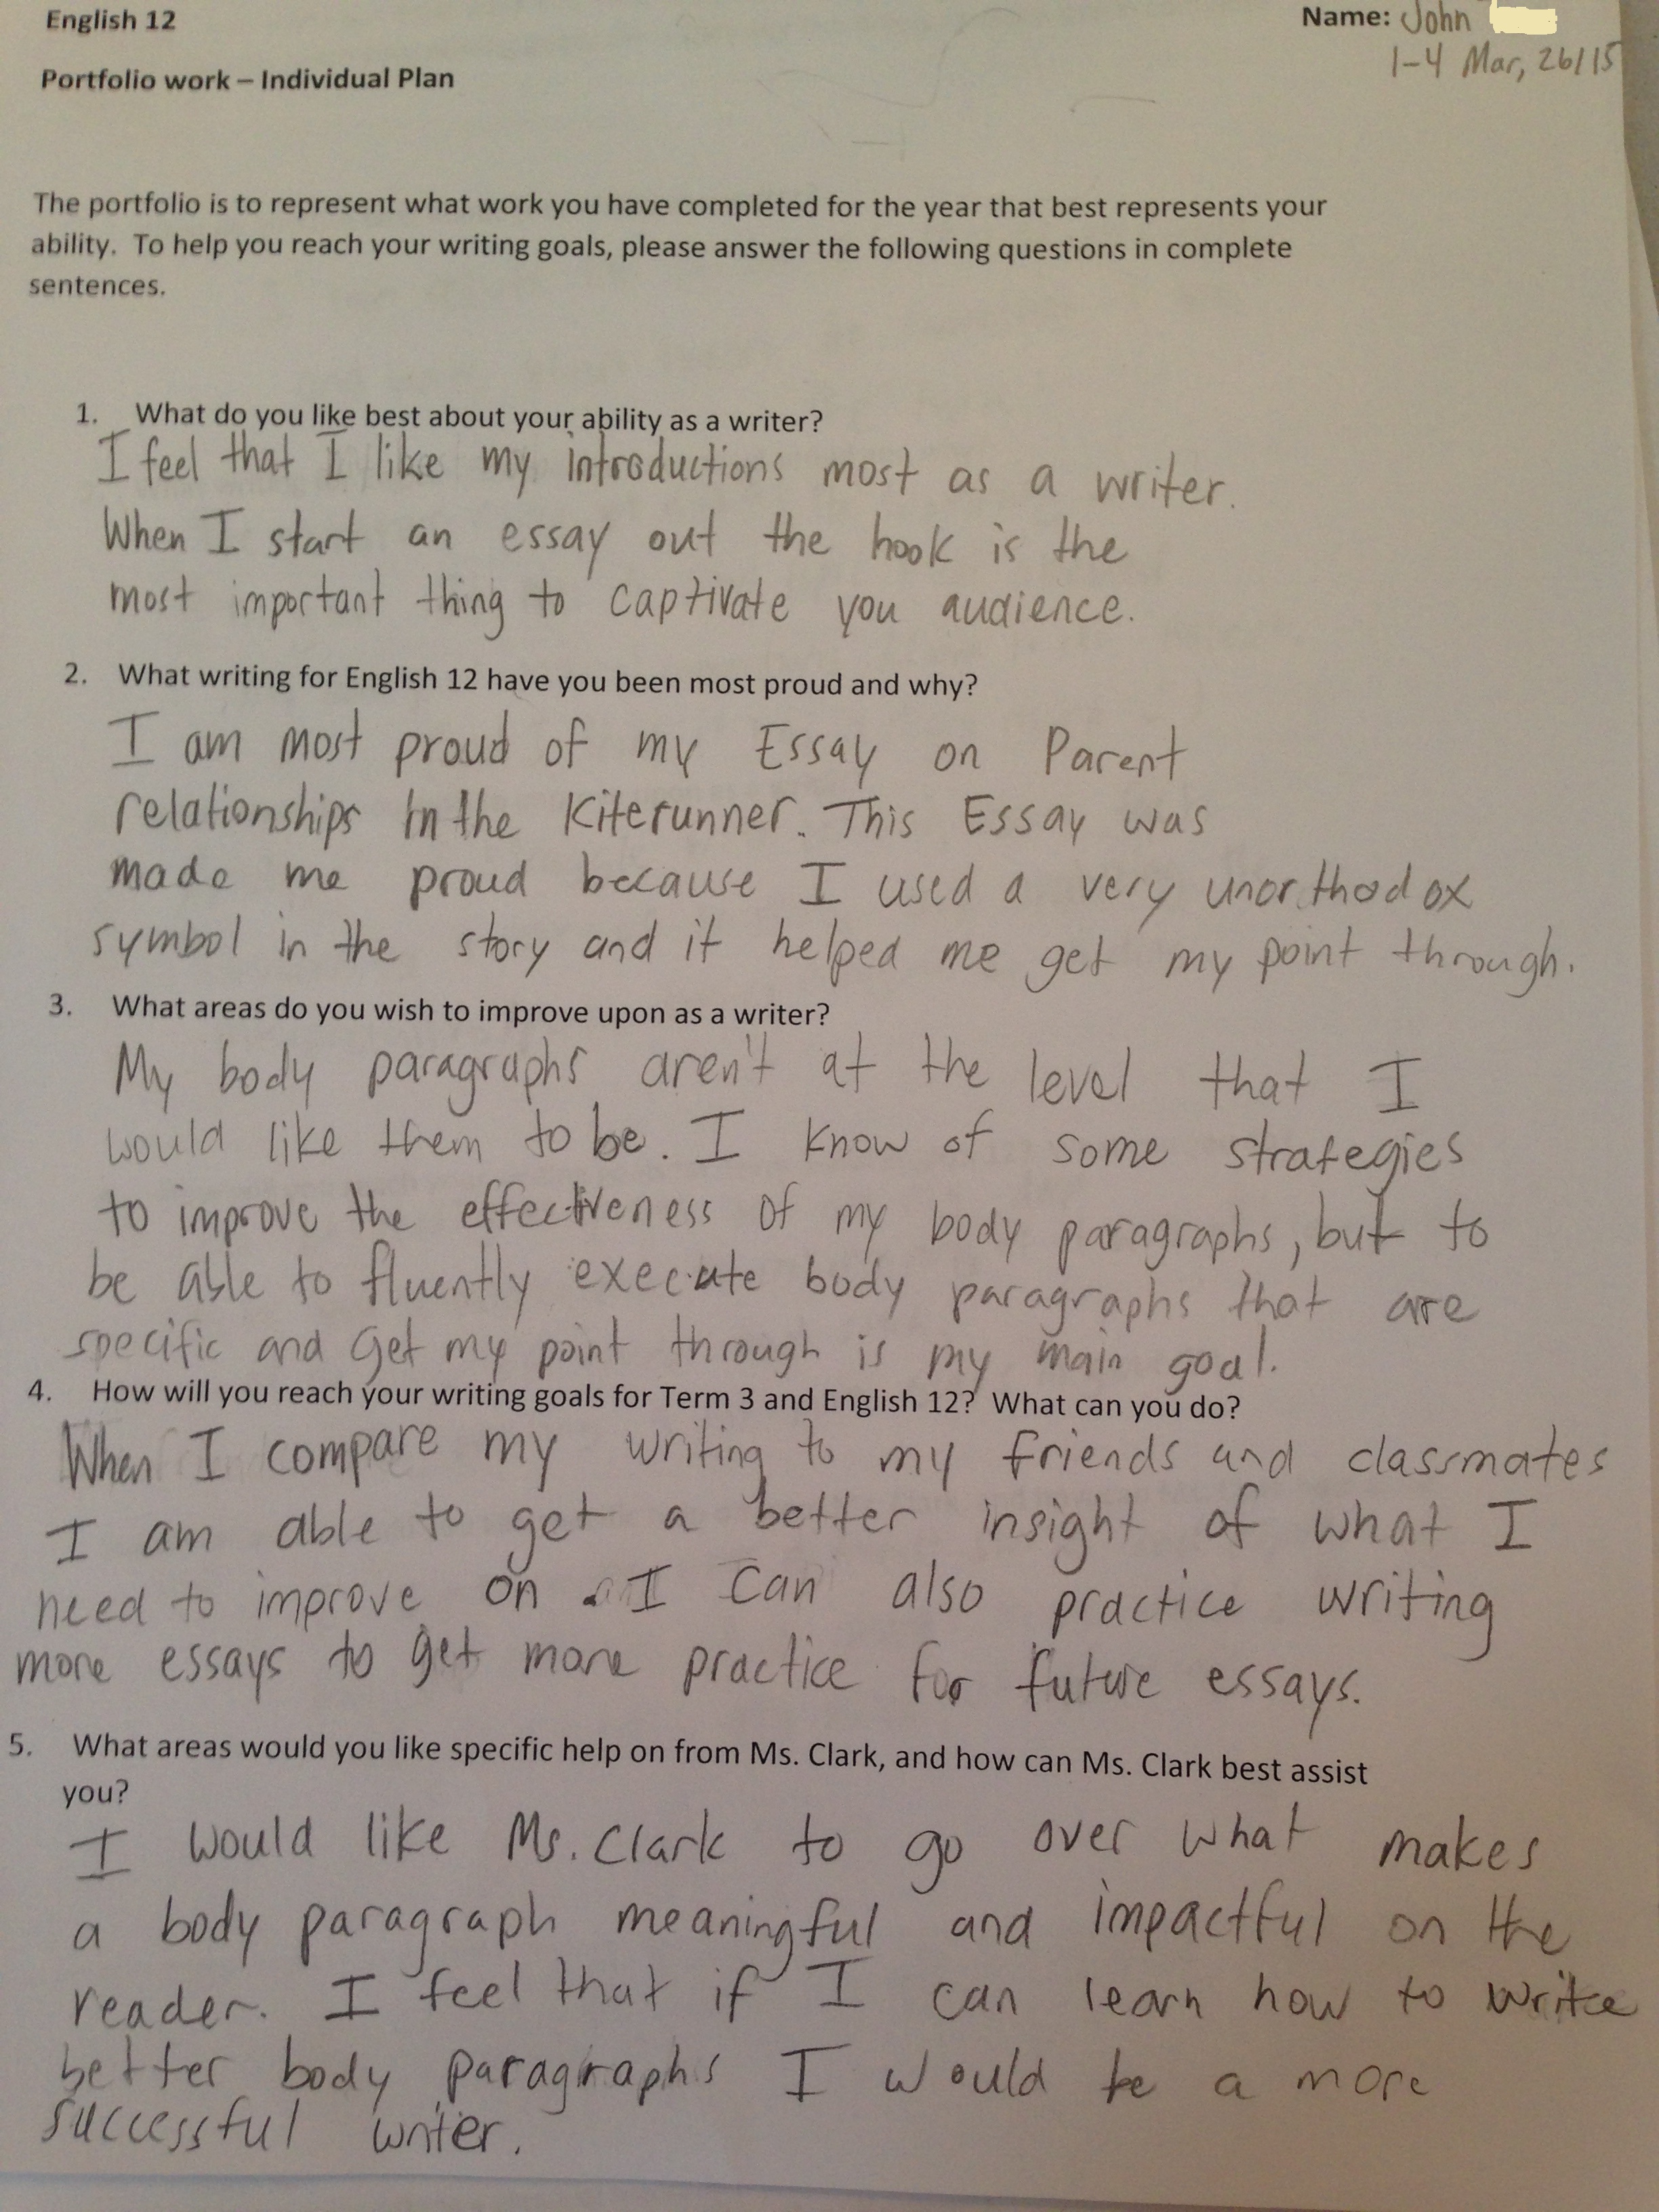 English 12
Name: John
1-4 Mar, 26/15
Portfolio work – Individual Plan
The portfolio is to represent what work you have completed for the year that best represents your
ability. To help you reach your writing goals, please answer the following questions in complete
sentences.
1. What do you like best about your ability as a writer?
I feel that I like my introductions most as a writer.
When I start an essay out the hook is the
most important thing to captivate you audience.
2. What writing for English 12 have you been most proud and why?
I am most proud of my Essay on Parent
relationships in the Kiterunner. This Essay was
made me proud because I used a very unorthodox
symbol in the story and it helped me get my point through.
3. What areas do you wish to improve upon as a writer?
My body paragraphs aren't at the level that I
would like them to be. I know of some strategies
to improve the effectiveness of my body paragraphs, but to
be able to fluently execute body paragraphs that are
specific and get my point through is my main goal.
4. How will you reach your writing goals for Term 3 and English 12? What can you do?
When I compare my writing to my friends and classmates
I am able to get a better insight of what I
need to improve on. I can also practice writing
more essays to get more practice for future essays.
5. What areas would you like specific help on from Ms. Clark, and how can Ms. Clark best assist
you?
I would like Ms. Clark to go over what makes
a body paragraph meaningful and impactful on the
reader. I feel that if I can learn how to write
better body paragraphs I would be a more
successful writer.